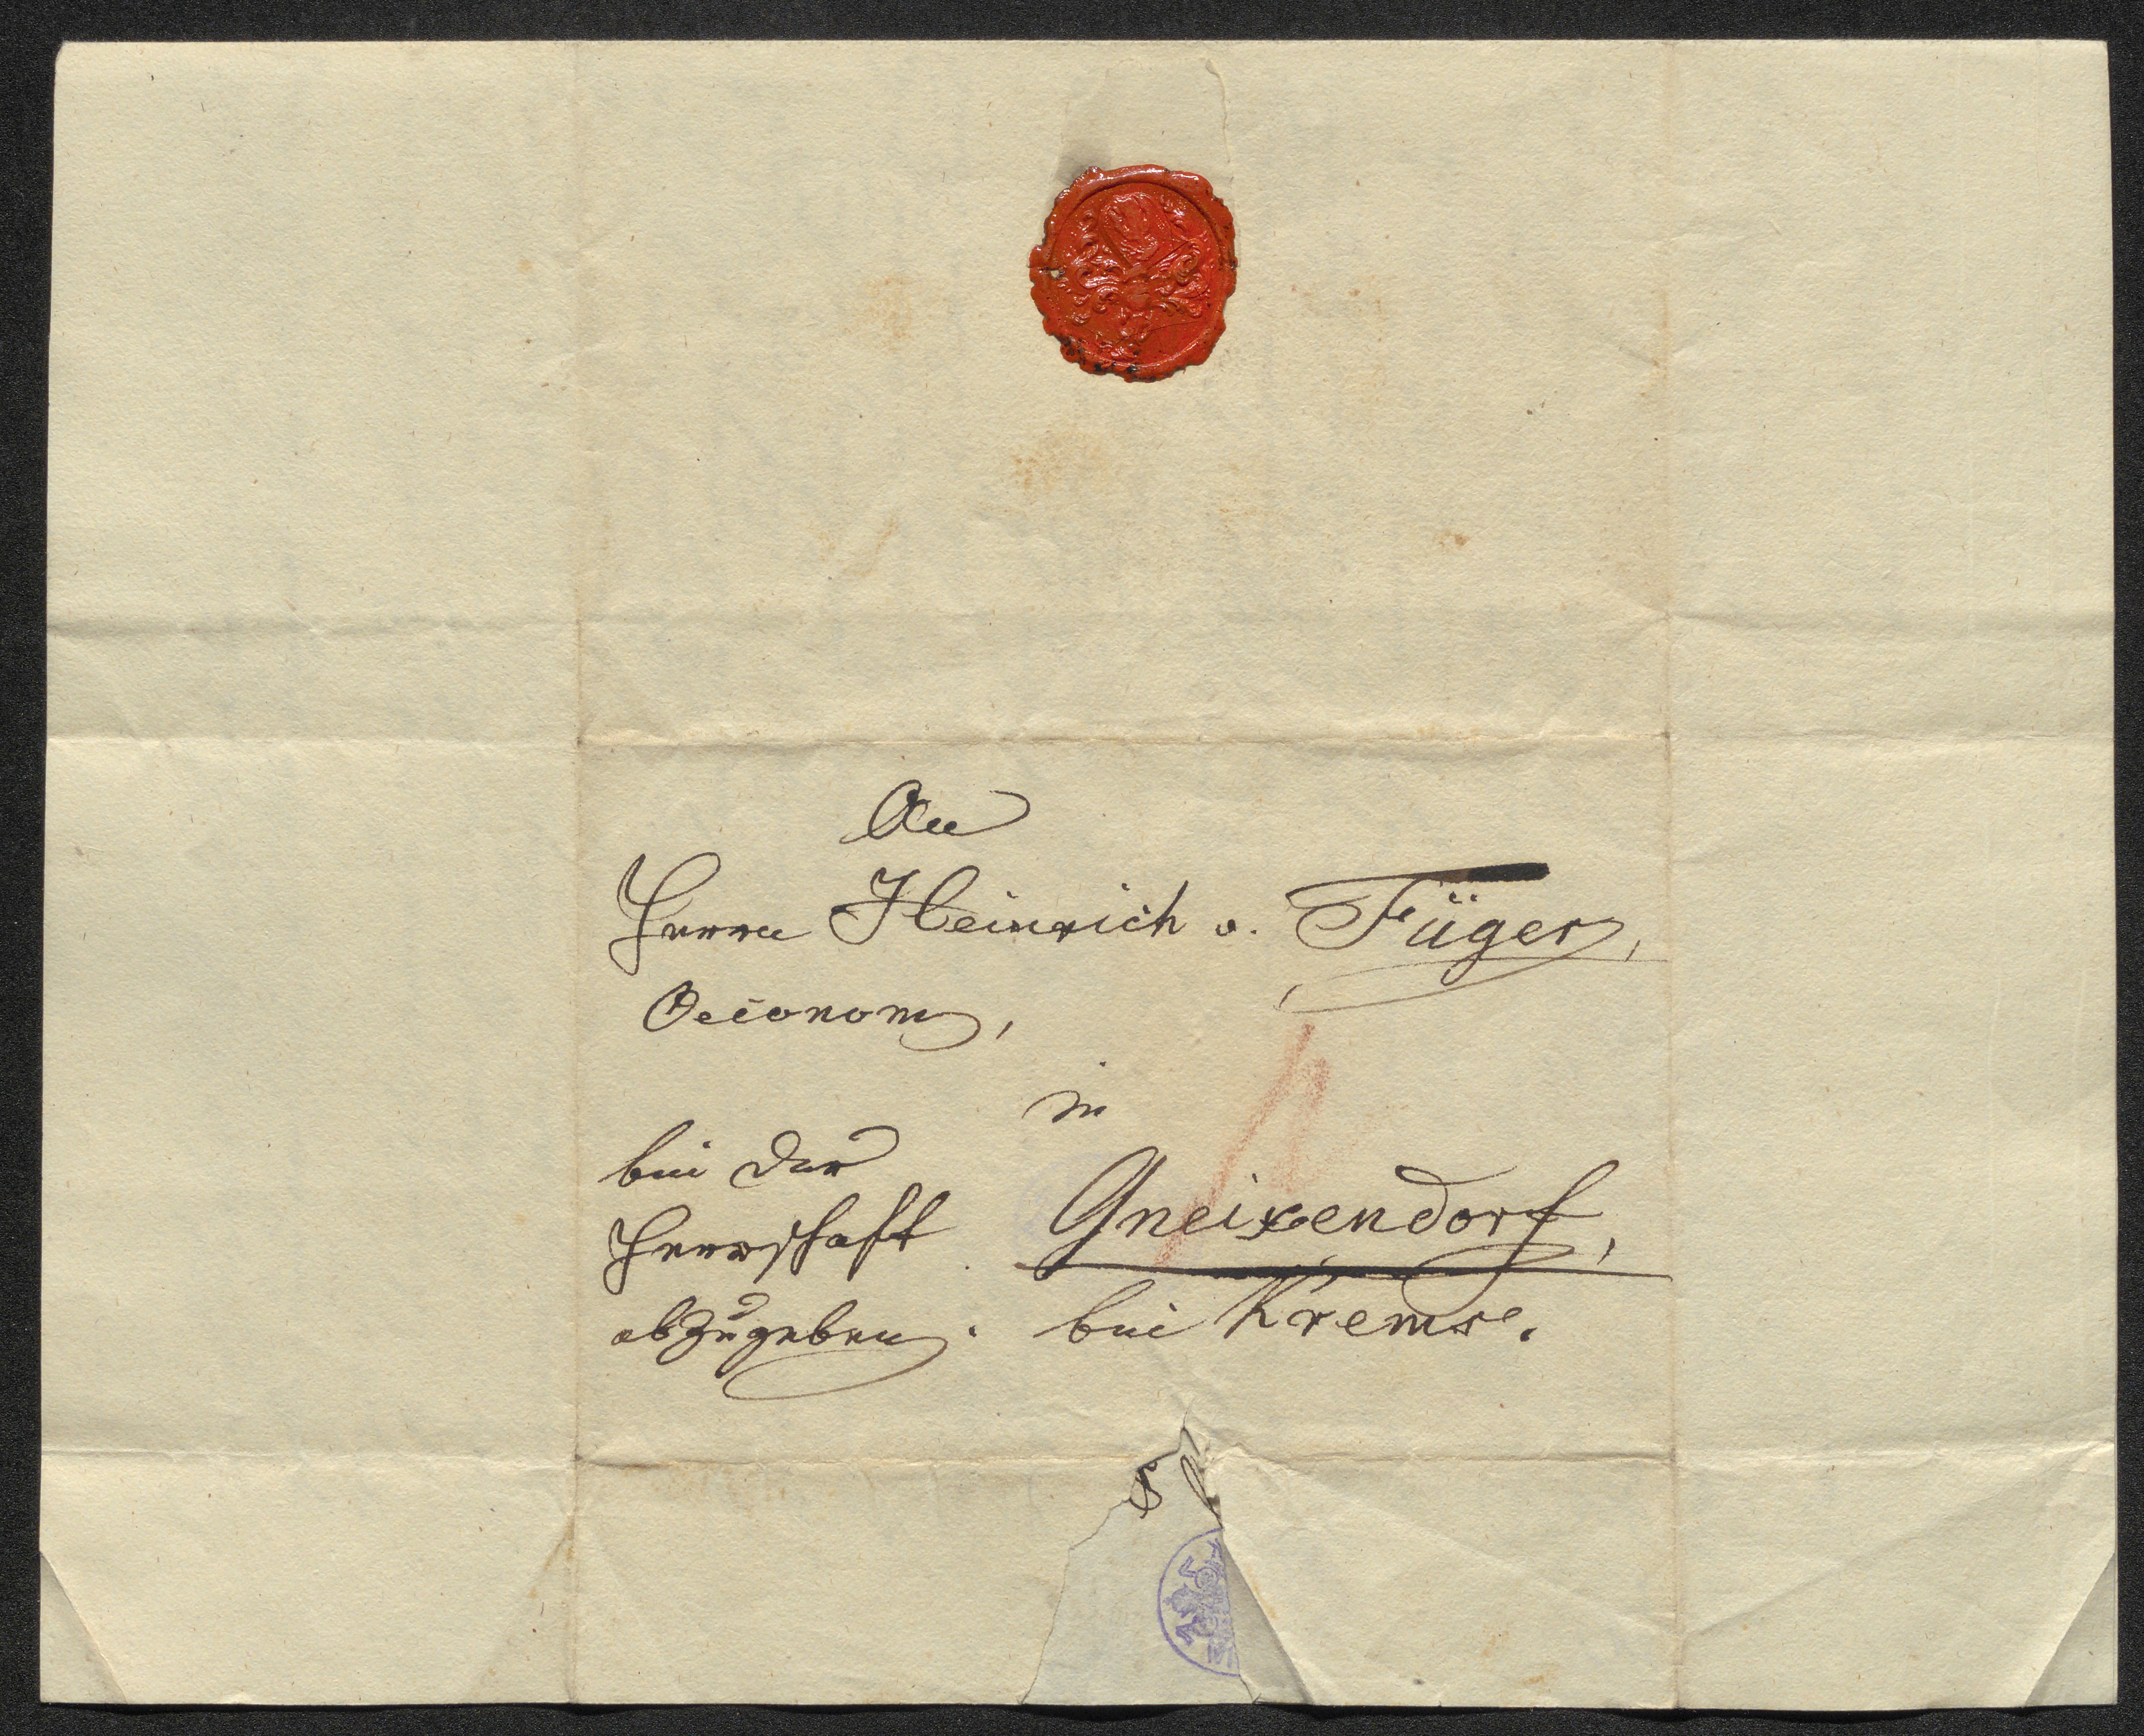 An
Herrn Heinrich v. Füger,
Oeconom,
in
bei der
Herrschaft
abzugeben.
Gneixendorf,
bei Krems.